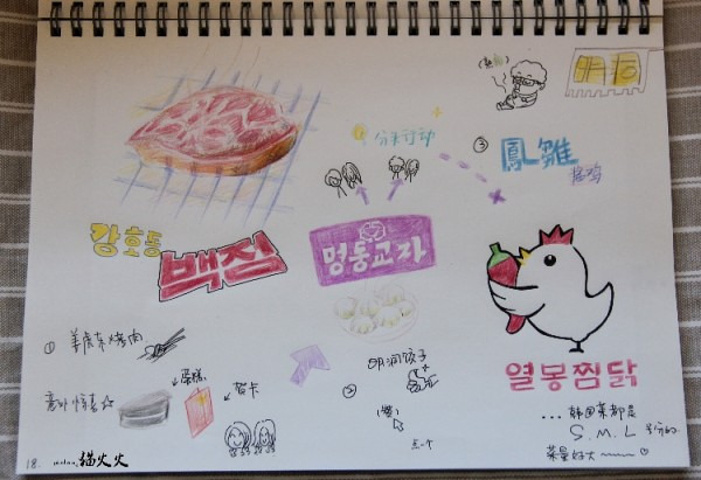 강호동
백정
① 姜虎东烤肉
意外惊喜☆
蛋糕
贺卡
分头行动
명동교자
② 明洞饺子
(赞)
点一个
③ 鳳雛
炖鸡
明洞
열봉찜닭
... 韩国菜都是
S.M.L 号分的
菜量好大~~~
18.
猫火火